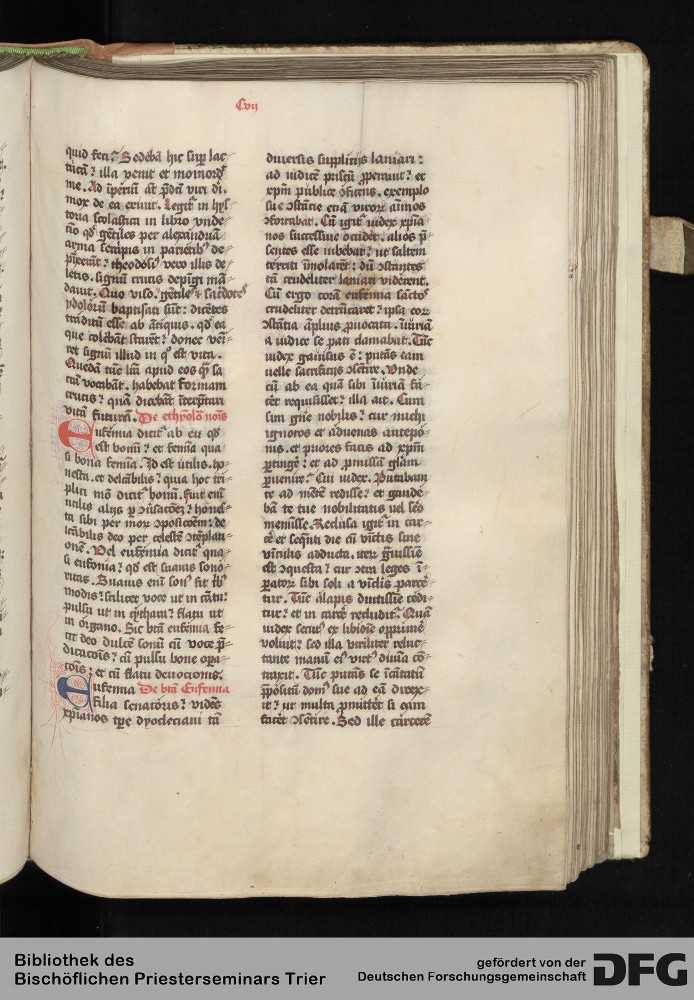 Cvij
quid feci? Sedebā hic sup lac-
tucā? illa venit et momordͭ
me. Ad īperiū at p̄dcī viri di.
mox de ea exiuit. Legitˀ in hys
toria scolastica in libro vnde
cīo qd gētiles per alexandriā
arma serapis in parietibꝯ de-
pīxerūt? theodosiꝯ vero illis de-
letis. signū crucis depīgi mā-
dauit. Quo viso. gētiles ⁊ sacdotes
ydolorū baptisati sūt: dicētes
traditū esse ab ātiquis. qd ea
que colebāt starēt? donec veni-
ret signū illud in qͦ est vita.
Quedā tūc lrā apud eos qͣ sa
crā vocabāt. habebat formam
crucis? quā dicebāt īterptari
vitā futurā. De ethymolo nois
Eufemia dicitˀ ab eu qd
est bonū? et femīa qua
si bona femīa. Id est vtilis. ho-
nesta. et delcābilis? qua hoc tri-
plici mō dicitˀ bonū. Fuit em̄
vtilis alijs p ꝯūsacōeȝ? hones-
ta sibi per morū ꝯpositioem: de-
lcābilis deo per celestē ꝯtēplati-
onē. Vel eufemia dicitˀ qua-
si eufonia? qd est suauis sono-
ritas. Suauis em̄ sonꝯ fit tͥbꝯ
modis? scilicet voce vt in cātu:
pulsu vt in cythara? flatu vt
in organo. Sic btā eufemia fe-
cit deo dulcē sonū cū voce p̄-
dicacōis? cū pulsu bone opa-
cōis: et cū flatu deuotionis.
Eufemia De btā Eufemia
filia senatoris? vidēs
xpianos tpre dyocleciani tā
diuersis supplicijs laniari:
ad iudicē priscū pperauit? et
xpm publice ꝯfitens. exemplo
sue ꝯstācie eciā virorū aīmos
ꝯfortabat. Cū igitˀ iudex xpia-
nos successiue occideret. alios p̄
sentes esse iubebat? vt saltem
territi īmolarēt: dū ꝯstantes
tā crudeliter laniari viderent.
Cū ergo corā eufemia sāctos
crudeliter detrūcaret? ipsa eorū
ꝯstātia āplius puocata. iīuriā
a iudice se pati clamabat. Tūc
iudex gauisus ē: putās eam
velle sacrificijs ꝯsētire. Vnde
cū ab ea quā sibi iīuriā fe-
cēt requisisset? illa ait. Cum
sim gn̄e nobilis? cur michi
ignotos et aduenas antepo-
nis. et priores facis ad xpm
ptingē? et ad pmissā gliam
puenire? Cui iudex. Putabam
te ad mētē redisse? et gaude-
bā te tue nobilitatis vel sex
meminisse. Reclusa igitˀ in car-
cē et seqn̄ti die cū vīctis sine
vīculis adducta. iterū ḡuissime
est ꝯquesta? cur ꝯtra leges ī-
patorū sibi soli a vīclis parce-
tur. Tūc alapis diutissime cedi-
tur? et in carcē recluditˀ. Quā
iudex secutꝯ ex libidīe opprimē
voluit? sed illa viriliter reluc-
tante manū eiꝯ virtꝯ diuīa cō-
traxit. Tūc putās se īcātatū
ppositū domꝯ sue ad eā direxe-
it? vt multa pmittēt si eam
facēt ꝯsētire. Sed ille carcerē
Bibliothek des
Bischöflichen Priesterseminars Trier
gefördert von der
Deutschen Forschungsgemeinschaft
DFG